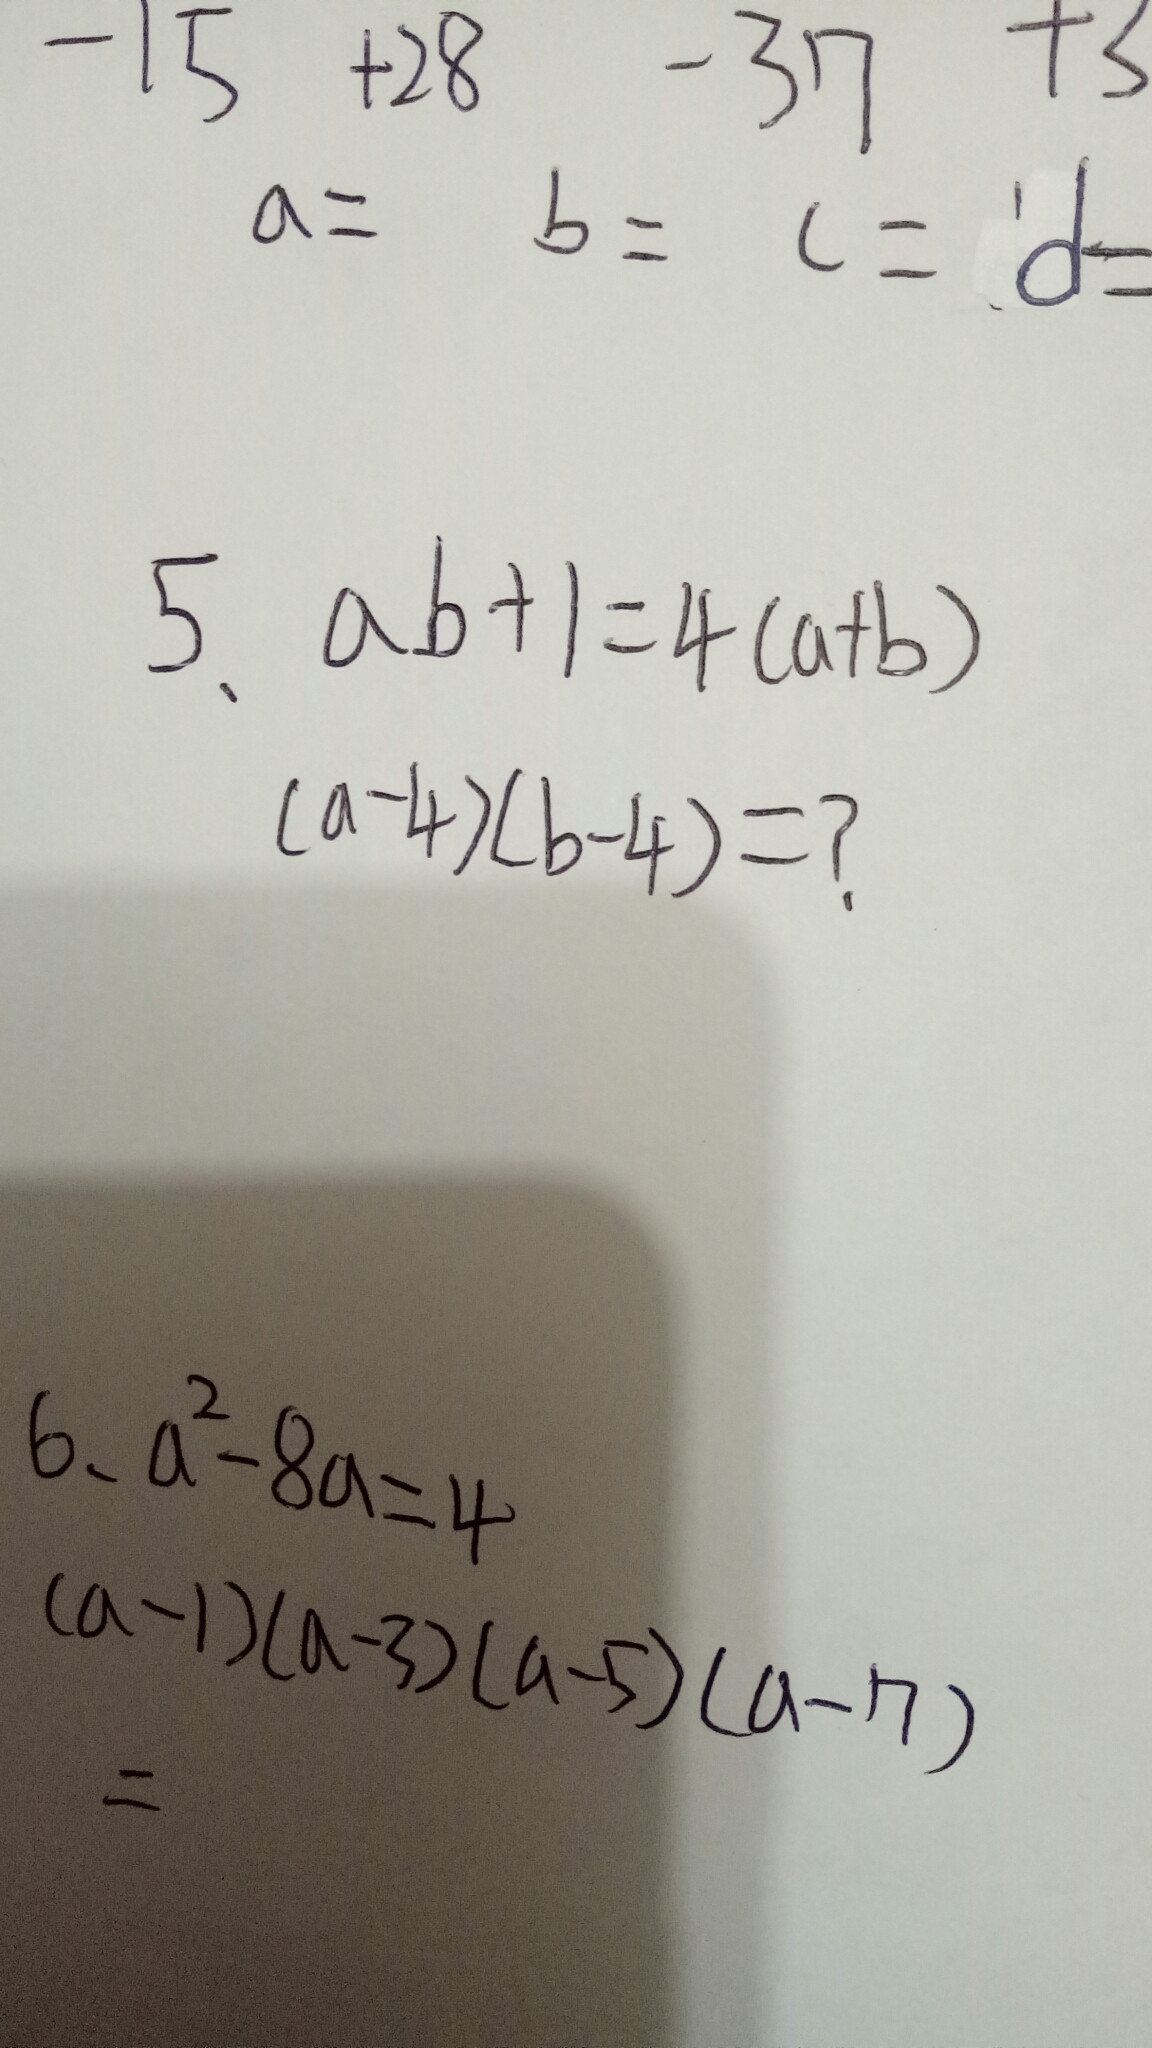 -15 +28 -37 +3
a= b= c= d=
5、ab+1=4(a+b)
(a-4)(b-4)=?
6、a²-8a=4
(a-1)(a-3)(a-5)(a-7)
=